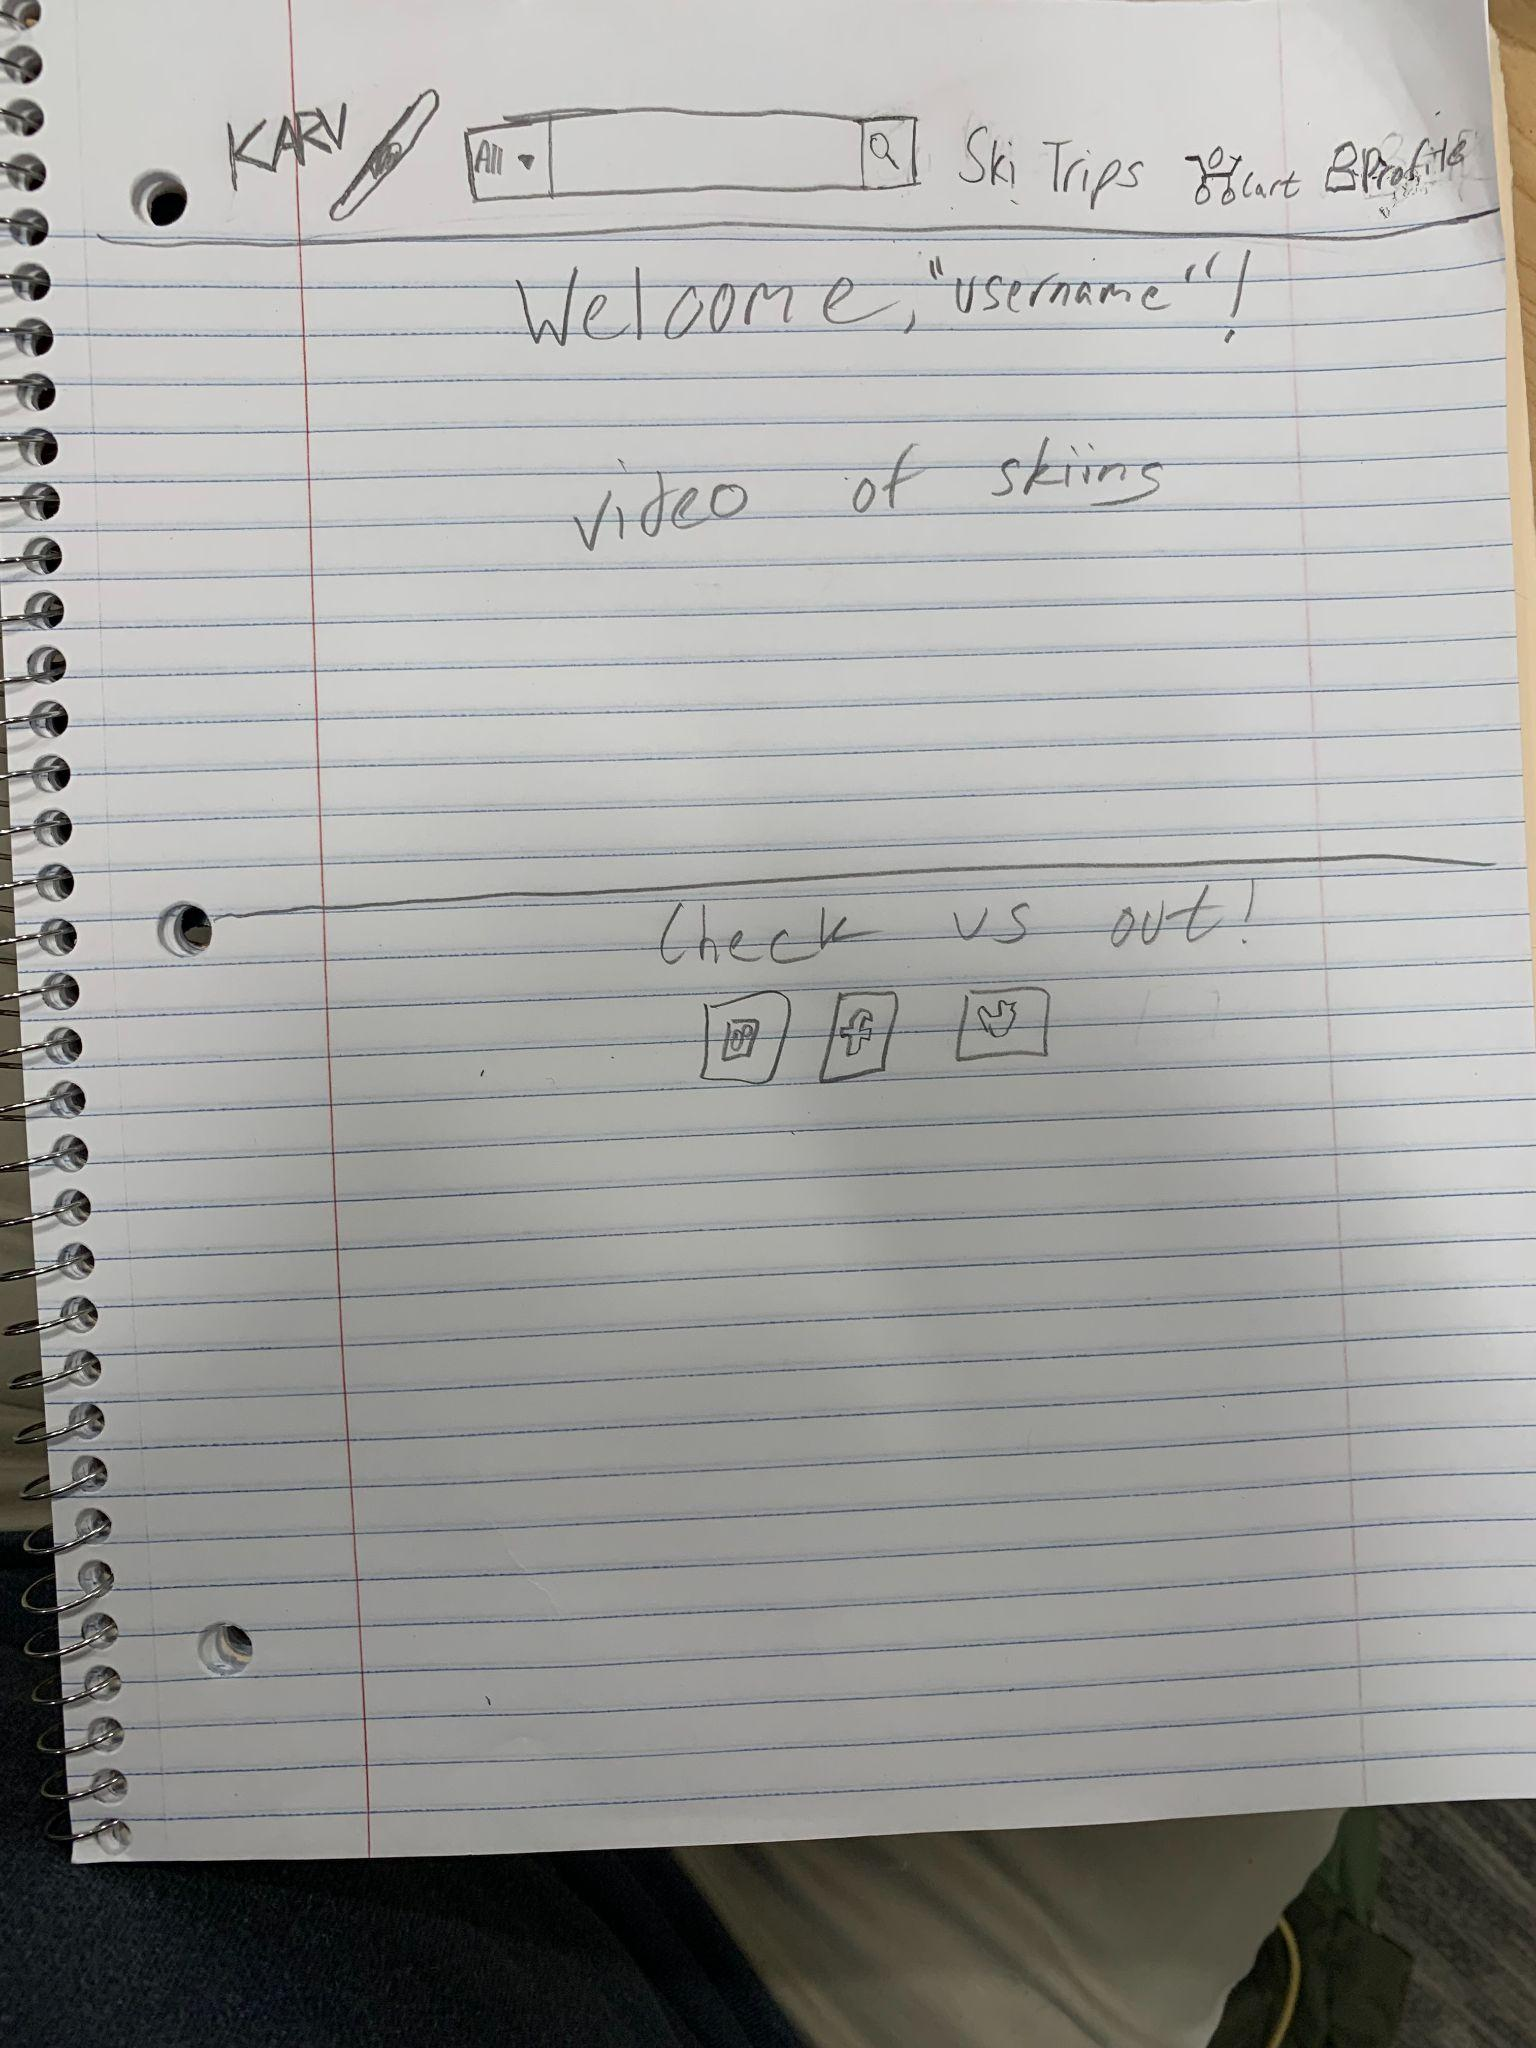 KARV All ▾ Ski Trips Cart Profile
Welcome, "username"!
video of skiing
Check us out!
f